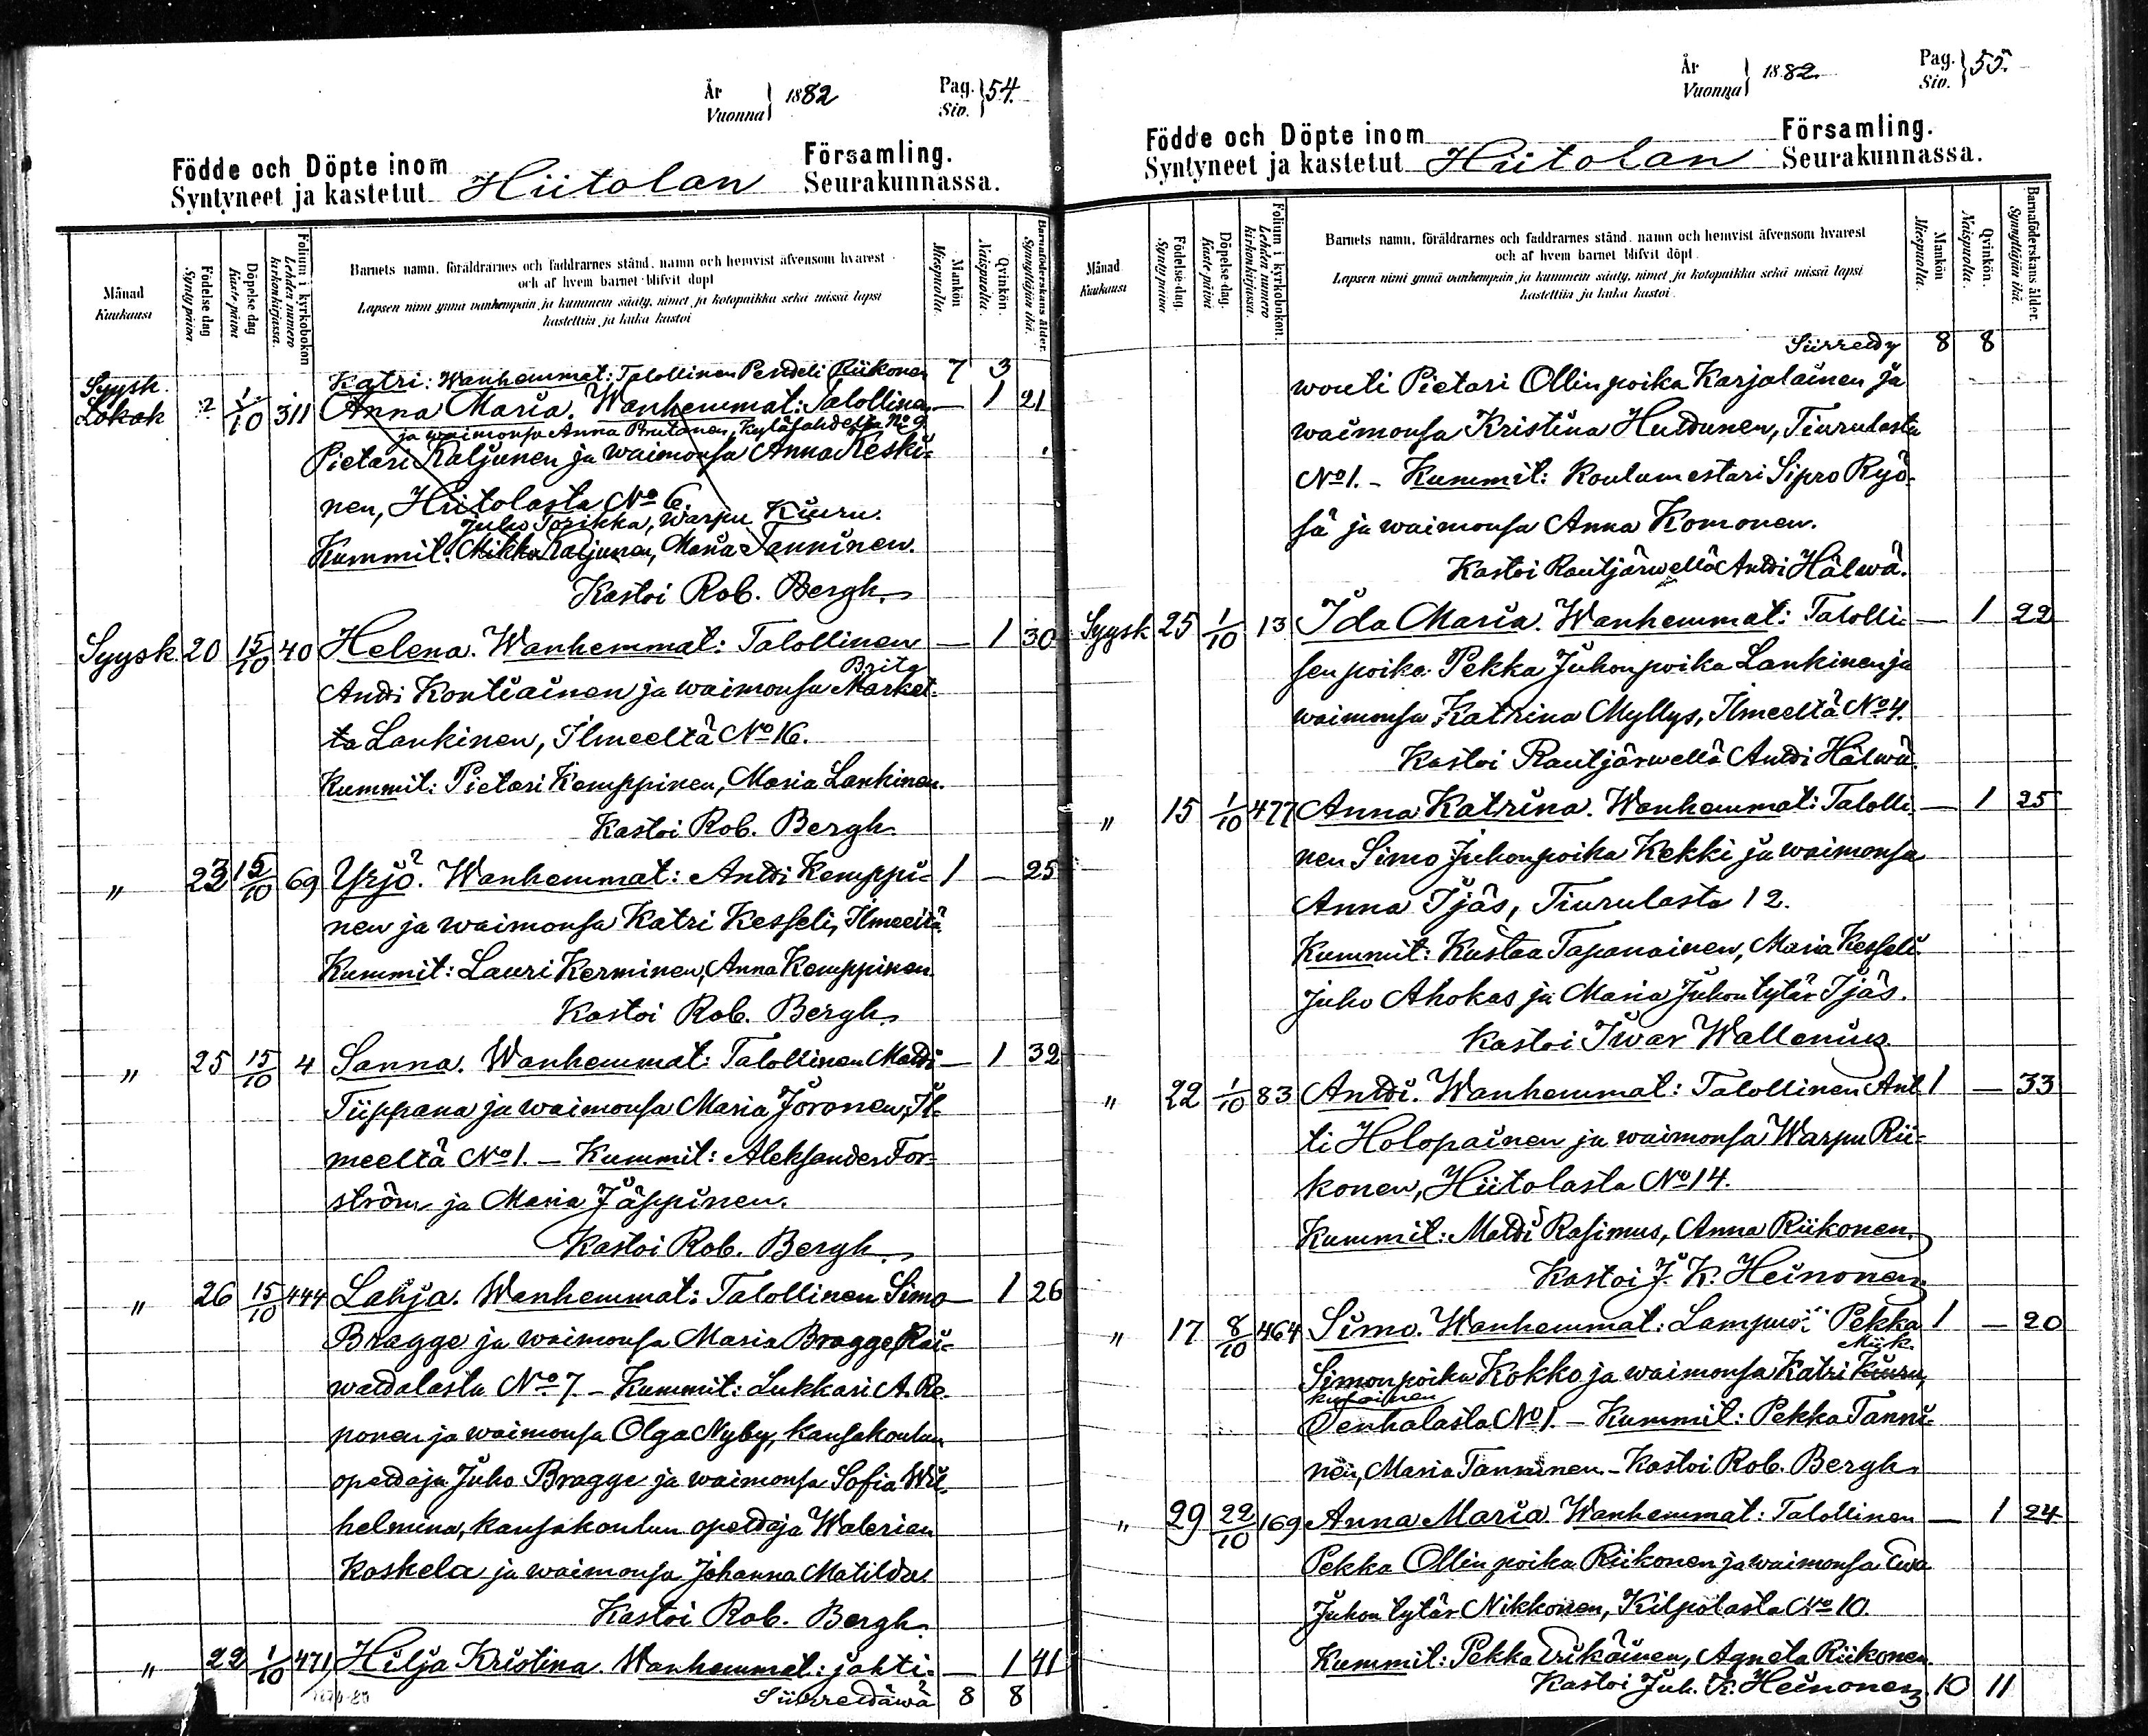 År
Vuonna } 1882
Pag.
Siv. } 54.
Födde och Döpte inom Församling.
Syntyneet ja kastetut Hiitolan Seurakunnassa.
Månad
Kuukausi
Födelse dag
Syntypäivä
Döpelse dag
Kaste päivä
Folium i kyrkobokon
Lehden numero
kirkonkirjassa.
Barnets namn, föräldrarnes och faddrarnes stånd, namn och hemvist äfvensom hvarest
och af hvem barnet blifvit döpt
Lapsen nimi ynnä vanhempain ja kummein sääty, nimet ja kotopaikka sekä missä lapsi
kastettiin ja kuka kastoi
Mankön
Miespuolta.
Qvinkön.
Naispuolta.
Barnaföderskans ålder.
Synnyttäjän ikä.
Katri: Wanhemmat: Talollinen Pendeli Riikonen 7 3
Syysk
Lokak 2 1/10 311 Anna Maria. Wanhemmat: Talollinen — 1 21
ja waimonsa Anna Prutanen, Kylälahdelta No 9
Pietari Kaljunen ja waimonsa Anna Keski-
nen, Hiitolasta No 6.
Juho Torikka, Warpu Kuuru.
Kummit: Mikko Kaljunen, Maria Tanninen.
Kastoi Rob. Bergh.
Syysk. 20 15/10 40 Helena. Wanhemmat: Talollinen — 1 30
Brita
Andi Kontiainen ja waimonsa Market-
ta Lankinen, Ilmeeltä No 16.
Kummit: Pietari Kemppinen, Maria Lankinen.
Kastoi Rob. Bergh.
" 23 15/10 69 Yrjö? Wanhemmat: Antti Kemppi- 1 — 25
nen ja waimonsa Katri Kesseli, Ilmeeltä
Kummit: Lauri Kerminen, Anna Kemppinen
Kastoi Rob. Bergh.
" 25 15/10 4 Sanna. Wanhemmat: Talollinen Matti — 1 32
Tiippana ja waimonsa Maria Joronen, Il-
meeltä No 1. — Kummit: Aleksander For-
ström ja Maria Jäppinen.
Kastoi Rob. Bergh.
" 26 15/10 444 Lahja. Wanhemmat: Talollinen Simo — 1 26
Bragge ja waimonsa Maria Bragge, Rai-
wattalasta No 7. — Kummit: Lukkari A. Re-
ponen ja waimonsa Olga Nyby, kansakoulun
opettaja Juho Bragge ja waimonsa Sofia Wil-
helmina, kansakoulun opettaja Walerian
Koskela ja waimonsa Johanna Matilda.
Kastoi Rob. Bergh.
" 22 1/10 471 Hilja Kristina. Wanhemmat: jahti- — 1 41
Siirrettäwä 8 8
År
Vuonna } 1882.
Pag.
Siv. } 55.
Födde och Döpte inom Församling.
Syntyneet ja kastetut Hiitolan Seurakunnassa.
Månad
Kuukausi
Födelse-dag.
Syntypäivä
Döpelse-dag.
Kaste-päivä
Folium i kyrkobokon.
Lehden numero
kirkonkirjassa.
Barnets namn, föräldrarnes och faddrarnes stånd, namn och hemvist äfvensom hvarest
och af hvem barnet blifvit döpt.
Lapsen nimi ynnä vanhempain ja kummein sääty, nimet ja kotopaikka sekä missä lapsi
kastettiin ja kuka kastoi.
Mankön
Miespuolta.
Qvinkön.
Naispuolta.
Barnaföderskans ålder.
Synnyttäjän ikä.
Siirretty 8 8
wouti Pietari Ollin poika Karjalainen ja
waimonsa Kristina Huttunen, Tiurulasta
No 1. — Kummit: Koulumestari Sipro Ryö-
sä ja waimonsa Anna Komonen.
Kastoi Rautjärwellä Antti Hälwä.
Syysk 25 1/10 13 Ida Maria. Wanhemmat: Talolli- — 1 22
sen poika Pekka Juhon poika Lankinen ja
waimonsa Katrina Myllys, Ilmeeltä No 4.
Kastoi Rautjärwellä Antti Hälwä.
" 15 1/10 477 Anna Katrina. Wanhemmat: Talolli- — 1 25
nen Simo Juhonpoika Kekki ja waimonsa
Anna Ijäs, Tiurulasta 12.
Kummit: Kustaa Tapanainen, Maria Kesseli.
Juho Ahokas ja Maria Juhontytär Ijäs.
Kastoi Iwar Wallenius.
" 22 1/10 83 Antti. Wanhemmat: Talollinen Ant- 1 — 33
ti Holopainen ja waimonsa Warpu Rii-
konen, Hiitolasta No 14.
Kummit: Matti Rasimus, Anna Riikonen.
Kastoi J. K. Heinonen.
" 17 8/10 464 Simo. Wanhemmat: Lampuoti Pekka 1 — 20
Miik.
Simonpoika Kokko ja waimonsa Katri Kuuru,
kulainen
Wenhalasta No 1. — Kummit: Pekka Tanni-
nen, Maria Tanninen. — Kastoi Rob. Bergh.
" 29 22/10 169 Anna Maria. Wanhemmat: Talollinen — 1 24
Pekka Ollin poika Riikonen ja waimonsa Ewa
Juhon tytär Nikkonen, Kilpolasta No 10.
Kummit: Pekka Erikäinen, Agneta Riikonen.
Kastoi Juh. K. Heinonen. 10 11